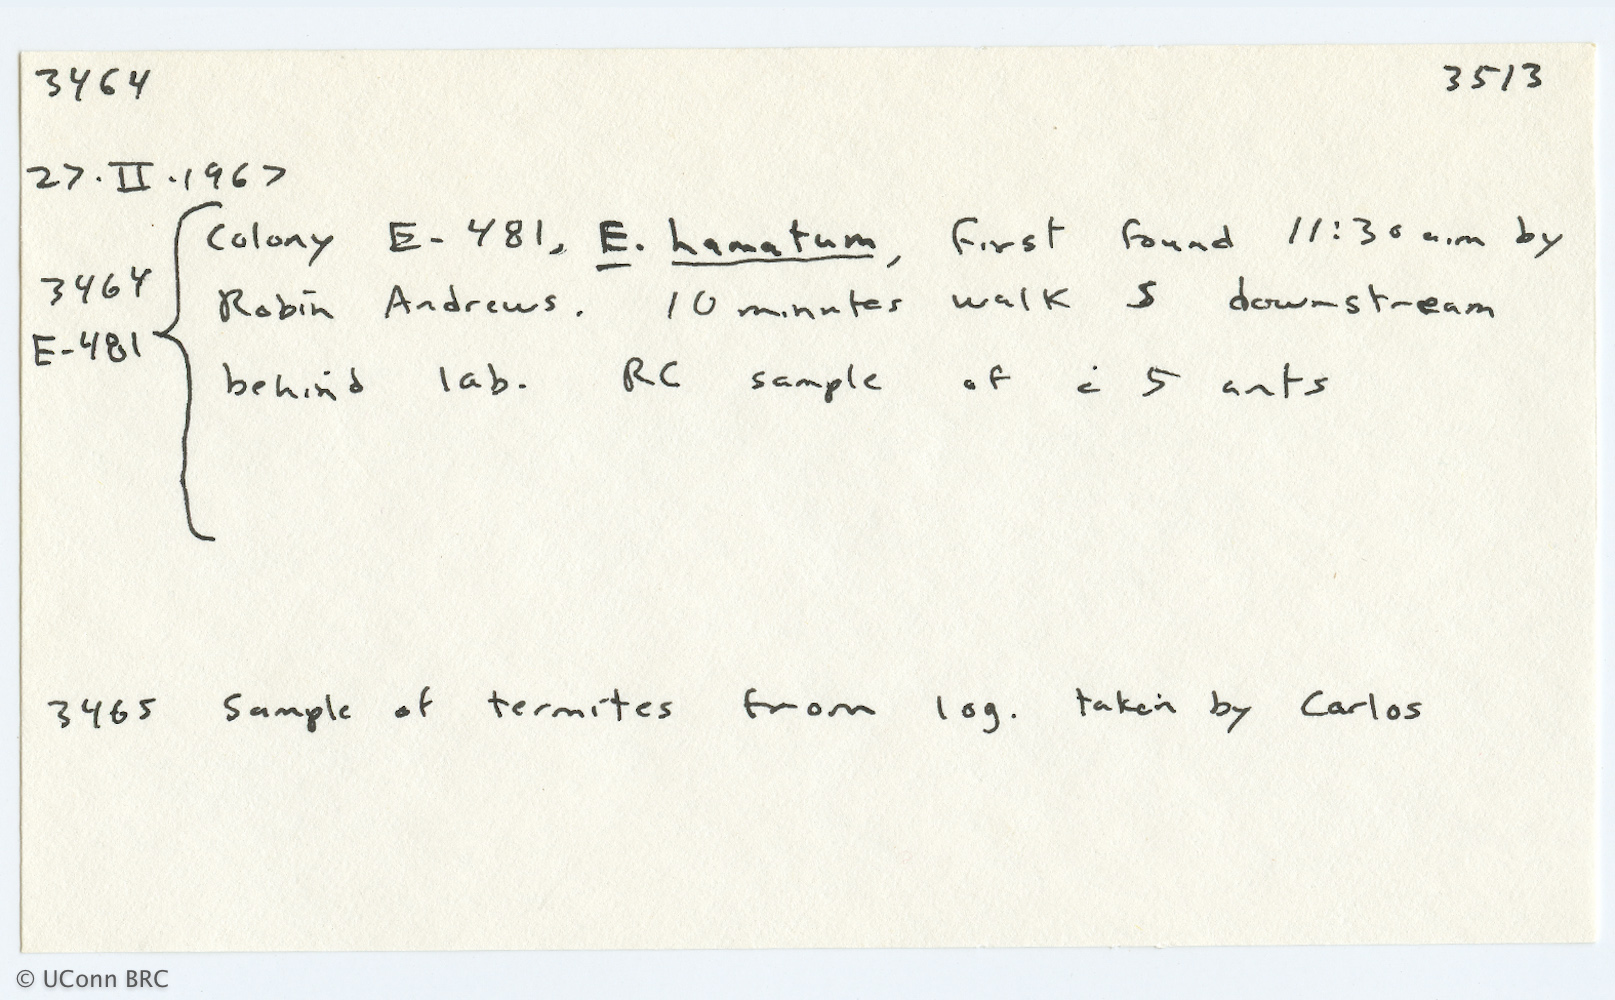 3464 3513
27.II.1967
Colony E-481, E. hamatum, first found 11:30 a.m by
3464 Robin Andrews. 10 minutes walk S downstream
E-481
behind lab. RC sample of c 5 ants
3465 Sample of termites from log. taken by Carlos
© UConn BRC